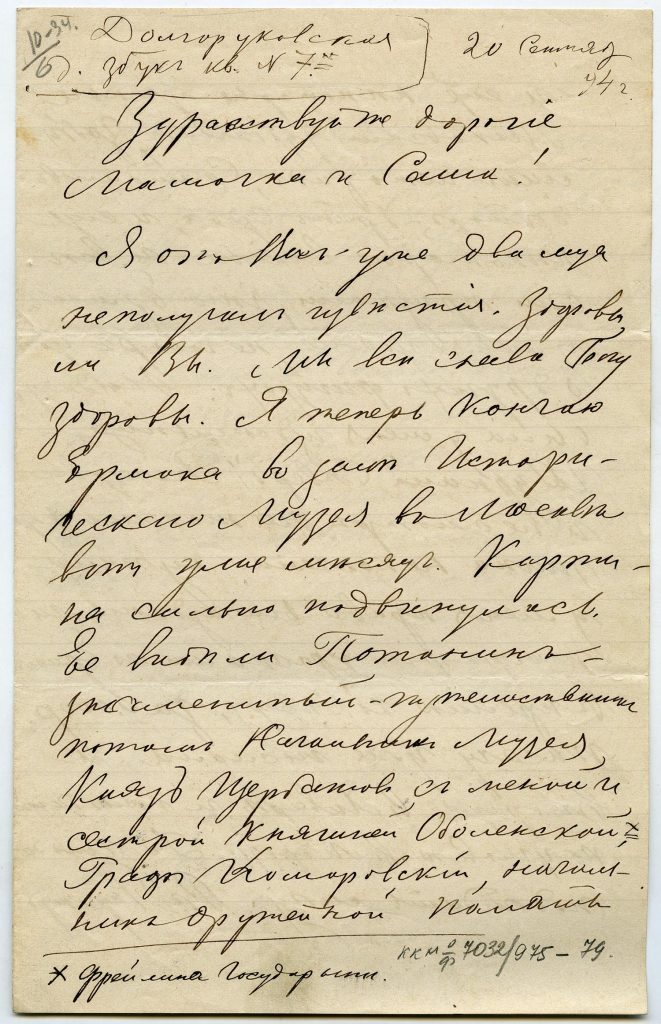 10-94.
6
Долгоруковская
д. Збукъ кв. N 7й
20 Сентяб
94 г.
Здравствуйте дорогіе
Мамочка и Саша!
Я отъ Васъ уже два м-ца
неполучалъ извѣстія. Здоровы
ли Вы. Мы всѣ слава Богу
здоровы. Я теперь кончаю
Ермака въ залѣ Истори-
ческаго Музея въ Москвѣ
вотъ уже мѣсяцъ. Карти-
на сильно подвинулась.
Ее видѣли Потанинъ-
знаменитый-путешественникъ
потомъ Начальникъ Музея
Князь Щербатовъ съ женой и
сестрой Княжной Оболенской ×
Графъ Комаровскій, началь-
никъ оружейной Палаты
× Фрейлина Государыни.
ККМ о/ф 7032/975-79.